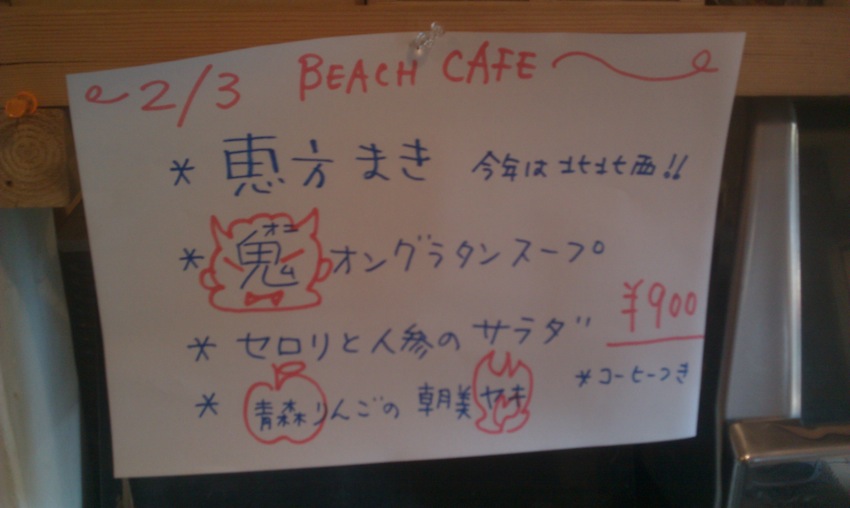 2/3 BEACH CAFE
* 恵方まき 今年は北北西!!
* 鬼オングラタンスープ
オニ
* セロリと人参のサラダ ¥900
* 青森りんごの朝美ヤキ *コーヒーつき